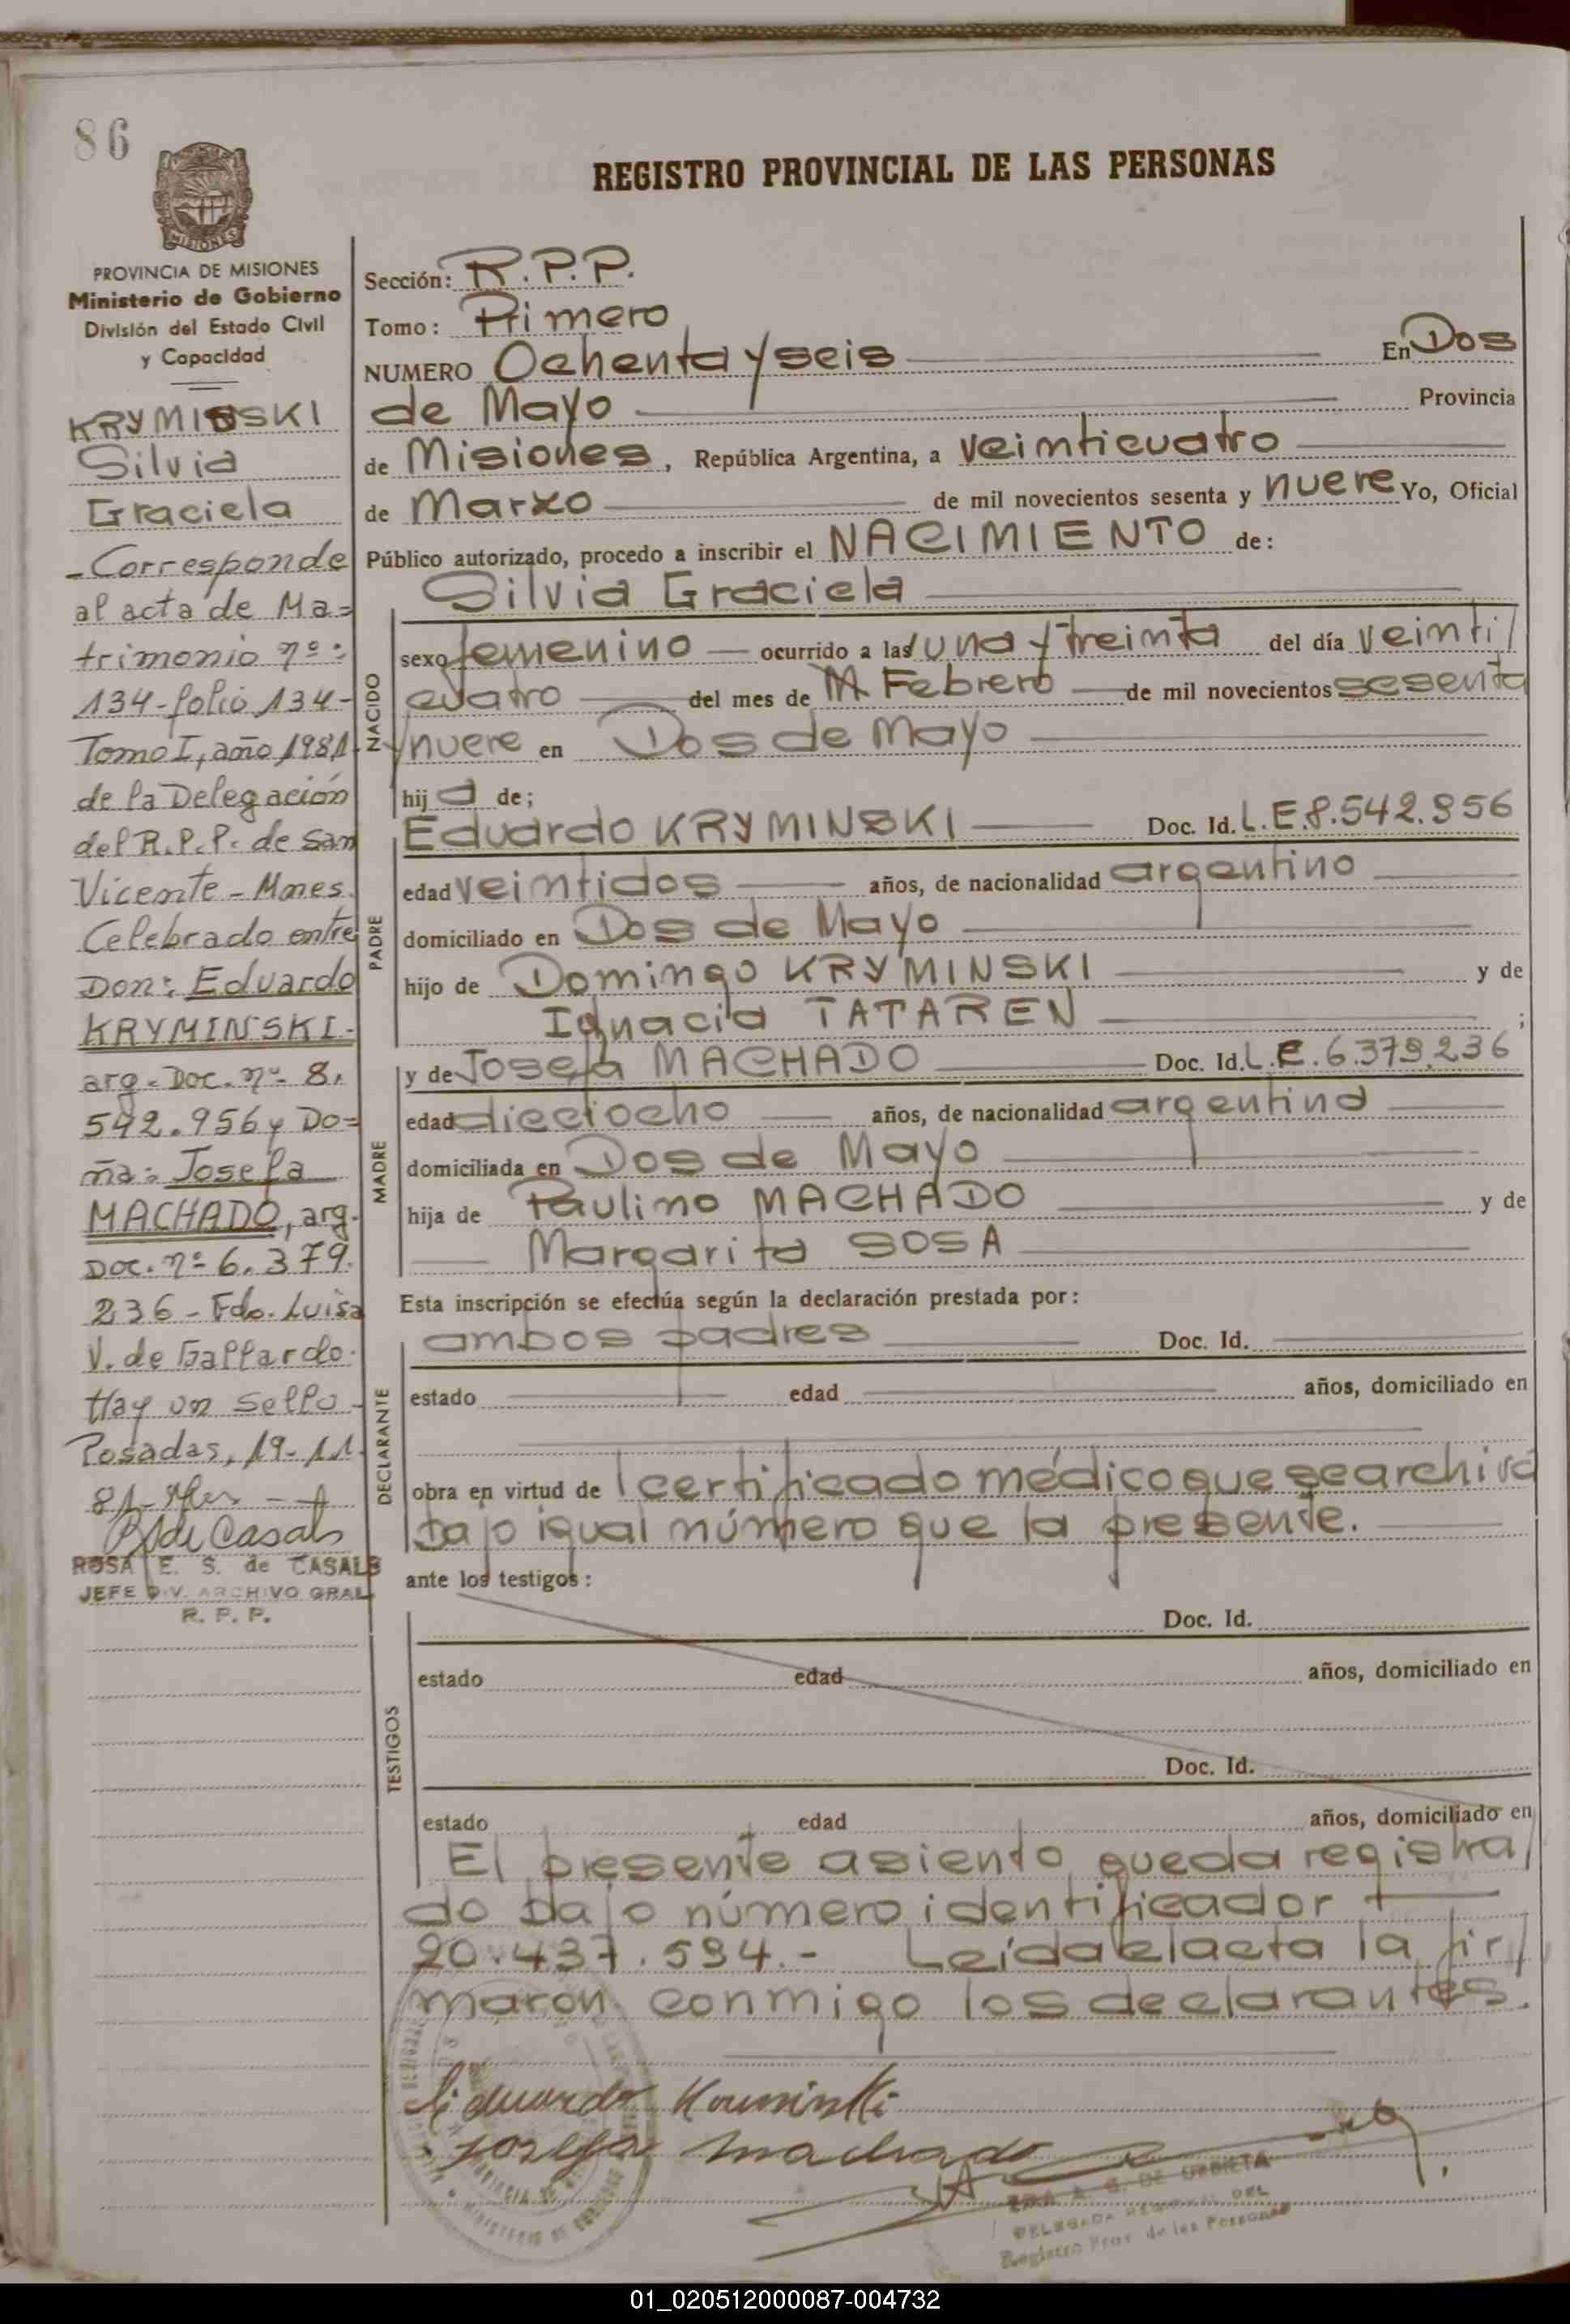 86
REGISTRO PROVINCIAL DE LAS PERSONAS
MISIONES
PROVINCIA DE MISIONES
Ministerio de Gobierno
División del Estado Civil
y Capacidad
KRYMINSKI
Silvia
Graciela
- Corresponde
al acta de Ma=
trimonio nº:
134-folio 134-
Tomo I, año 1981-
de la Delegación
del R.P.P. de San
Vicente - Mnes.
Celebrado entre
Don: Eduardo
KRYMINSKI-
arg. Doc. nº 8.
542.956 y Do=
ña: Josefa
MACHADO, arg.
Doc. nº 6.379.
236 - Fdo. Luisa
V. de Gallardo.
Hay un Sello-
Posadas, 19-11-
81-
ROSA E. S. de CASALS
JEFE DIV. ARCHIVO GRAL
R. P. P.
Sección: R.P.P.
Tomo: Primero
NUMERO Ochenta y seis En Dos
de Mayo Provincia
de Misiones, República Argentina, a veinticuatro
de Marzo de mil novecientos sesenta y nueve Yo, Oficial
Público autorizado, procedo a inscribir el NACIMIENTO de:
Silvia Graciela
NACIDO
sexo femenino ocurrido a las una y treinta del día veinti/
cuatro del mes de Febrero de mil novecientos sesenta
y nueve en Dos de Mayo
hij a de;
Eduardo KRYMINSKI Doc. Id. L.E.8.542.956
PADRE
edad veintidos años, de nacionalidad argentino
domiciliado en Dos de Mayo
hijo de Domingo KRYMINSKI y de
Ignacia TATAREN ;
y de Josefa MACHADO Doc. Id. L.E.6.379.236
MADRE
edad dieciocho años, de nacionalidad argentina
domiciliada en Dos de Mayo
hija de Paulino MACHADO y de
Margarita SOSA
Esta inscripción se efectúa según la declaración prestada por:
DECLARANTE
ambos padres Doc. Id.
estado edad años, domiciliado en
obra en virtud de l certificado médico que se archiva
bajo igual número que la presente.
ante los testigos:
TESTIGOS
Doc. Id.
estado edad años, domiciliado en
Doc. Id.
estado edad años, domiciliado en
El presente asiento queda registra/
do bajo número identificador
20.437.594.- Leída el acta la fir/
maron conmigo los declarantes.
Eduardo Kryminski
Josefa Machado
DELEGADA REGIONAL DEL
Registro Prov. de las Personas
01_020512000087-004732